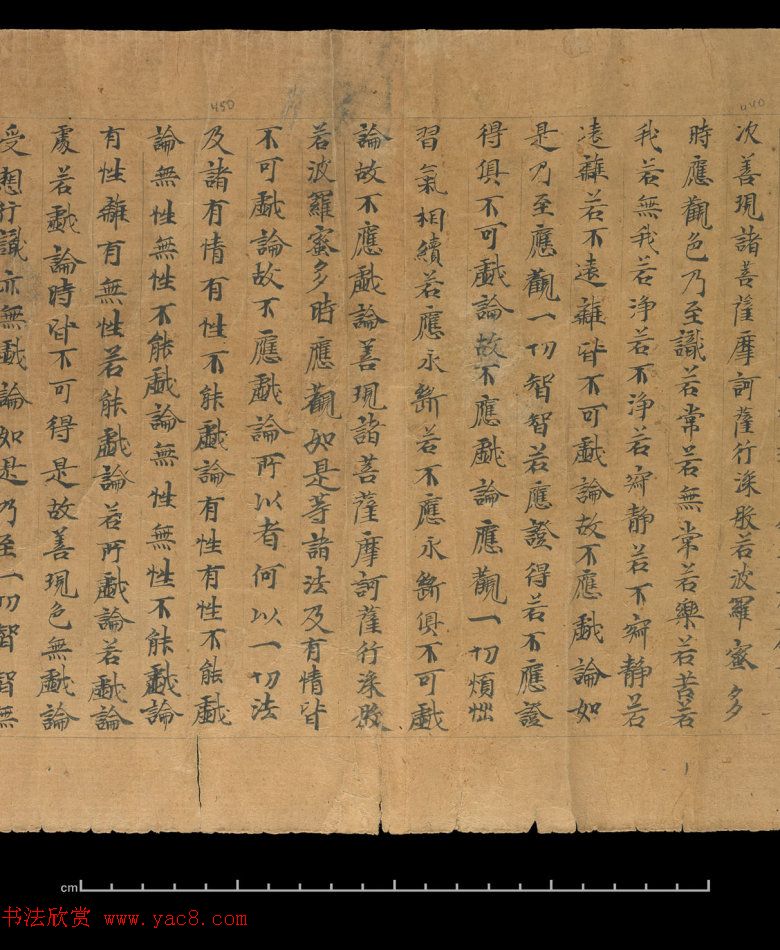 440
450
次善現諸菩薩摩訶薩行深般若波羅蜜多
時應觀色乃至識若常若無常若樂若苦若
我若無我若淨若不淨若寂靜若不寂靜若
遠離若不遠離皆不可戲論故不應戲論如
是乃至應觀一切智智若應證得若不應證
得俱不可戲論故不應戲論應觀一切煩惱
習氣相續若應永斷若不應永斷俱不可戲
論故不應戲論善現諸菩薩摩訶薩行深般
若波羅蜜多時應觀如是等諸法及有情皆
不可戲論故不應戲論所以者何以一切法
及諸有情有性不能戲論有性有性不能戲
論無性無性不能戲論無性無性不能戲論
有性離有無性若能戲論若所戲論若戲論
處若戲論時皆不可得是故善現色無戲論
受想行識亦無戲論如是乃至一切智智無
cm
书法欣赏 www.yac8.com